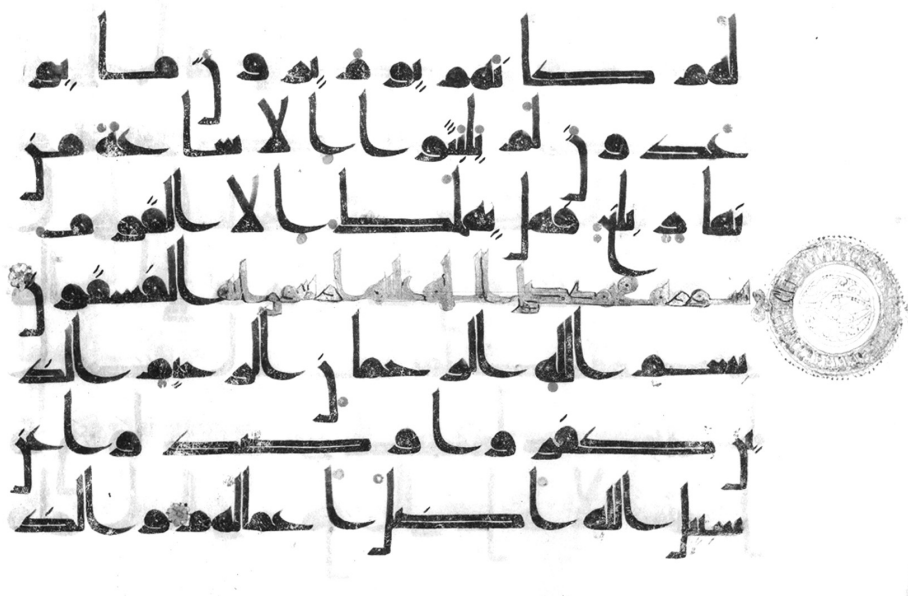 لهم كانهم يوم يرون ما يو
عدون لم يلبثوا الا ساعة من
نهار بلغ فهل يهلك الا القوم
الفسقون
بسم الله الرحمن الرحيم الذ
ين كفروا وصدوا عن
سبيل الله اضل اعملهم والذ